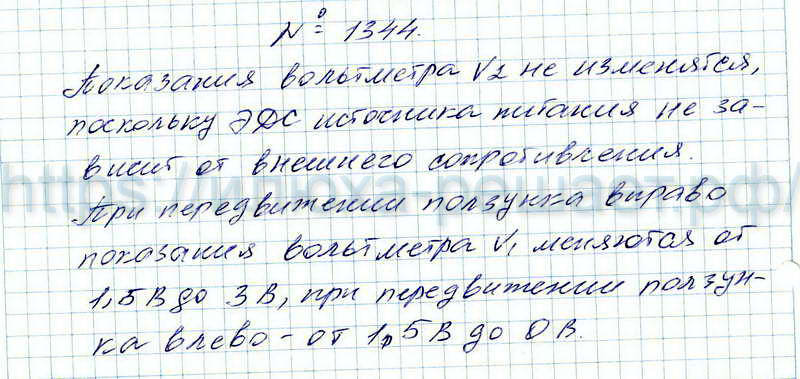 № 1344.
Показания вольтметра V2 не изменятся,
поскольку ЭДС источника питания не за-
висит от внешнего сопротивления.
При передвижении ползунка вправо
показания вольтметра V1 меняются от
1,5 В до 3 В, при передвижении ползун-
ка влево - от 1,5 В до 0 В.